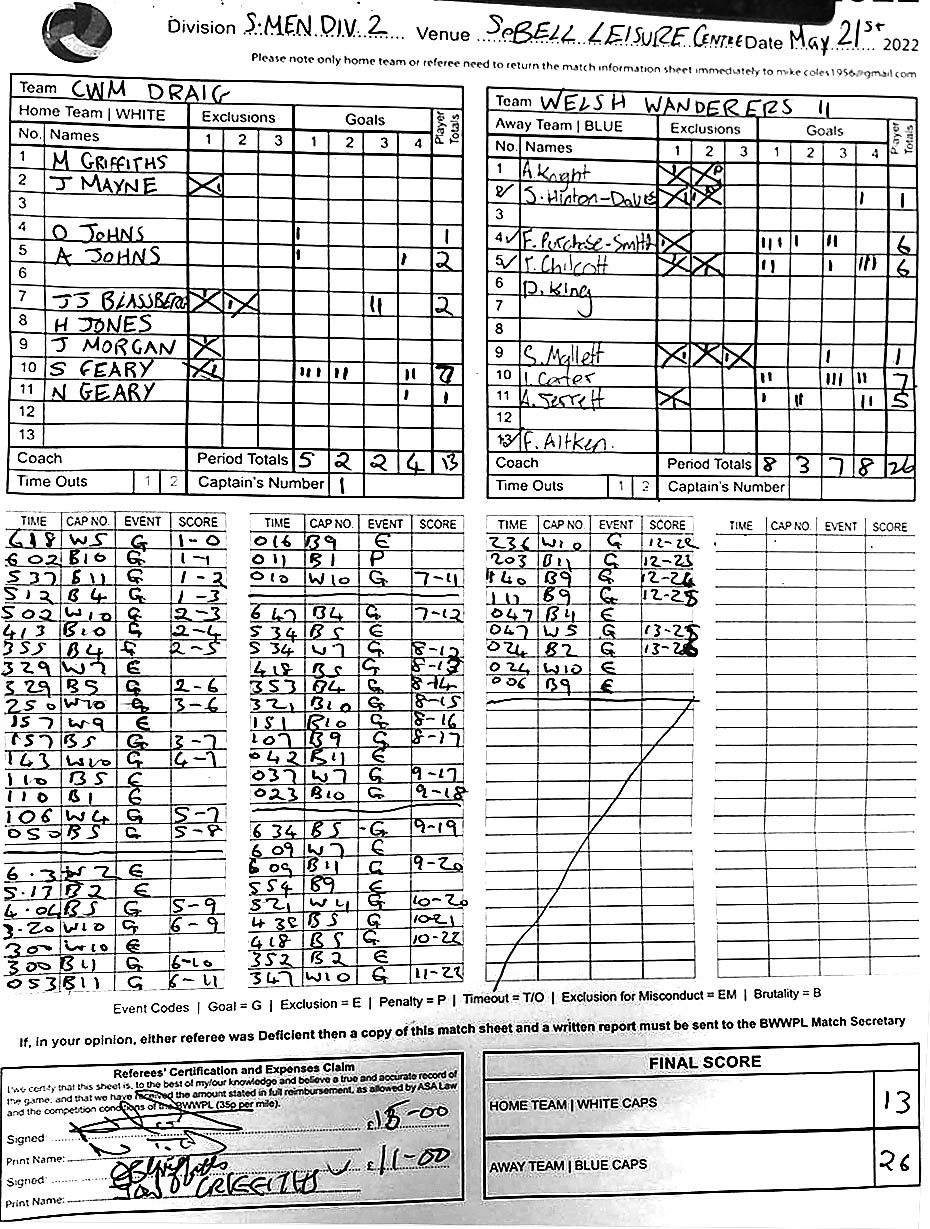 Division S.MEN.DIV.2 Venue SOBELL LEISURE CENTRE Date May 21ST 2022
Please note only home team or referee need to return the match information sheet immediately to mike coles1956@gmail.com
Team CWM DRAIG
Home Team | WHITE Exclusions Goals Player Totals
No. Names 1 2 3 1 2 3 4
1 M GRIFFITHS
2 J MAYNE X
3
4 O JOHNS I 1
5 A JOHNS I I 2
6
7 JJ BLASSBERG X X II 2
8 H JONES
9 J MORGAN X
10 S GEARY X III II II 7
11 N GEARY I 1
12
13
Coach Period Totals 5 2 2 4 13
Time Outs 1 2 Captain's Number 1
Team WELSH WANDERERS II
Away Team | BLUE Exclusions Goals Player Totals
No. Names 1 2 3 1 2 3 4
1 A. Knight X X P
2 S. Hinton-Davies X X I 1
3
4 F. Purchase-Smith X III I II 6
5 T. Chilcott X X II I III 6
6 D. King
7
8
9 S. Mallett X X X I 1
10 I. Carter II III II 7
11 A. Jerrett X I II II 5
12
13 F. Aitken.
Coach Period Totals 8 3 7 8 26
Time Outs 1 2 Captain's Number
TIME CAP NO. EVENT SCORE
618 W5 G 1-0
602 B10 G 1-1
537 B11 G 1-2
512 B4 G 1-3
502 W10 G 2-3
413 B10 G 2-4
355 B4 G 2-5
329 W7 E
329 B5 G 2-6
250 W10 G 3-6
157 W9 E
157 B5 G 3-7
143 W10 G 4-7
110 B5 E
110 B1 E
106 W4 G 5-7
050 B5 G 5-8
6.3 W2 E
5.17 B2 E
4.04 B5 G 5-9
3.20 W10 G 6-9
300 W10 E
300 B11 G 6-10
053 B11 G 6-11
TIME CAP NO. EVENT SCORE
016 B9 E
011 B1 P
010 W10 G 7-11
647 B4 G 7-12
534 B5 E
534 W7 G 8-12
418 B5 G 8-13
353 B4 G 8-14
321 B10 G 8-15
151 B10 G 8-16
107 B9 G 8-17
042 B11 E
037 W7 G 9-17
023 B10 G 9-18
634 B5 G 9-19
609 W7 E
609 B11 G 9-20
554 B9 E
521 W4 G 10-20
438 B5 G 10-21
418 B5 G 10-22
352 B2 E
347 W10 G 11-22
TIME CAP NO. EVENT SCORE
236 W10 G 12-22
203 B11 G 12-23
140 B9 G 12-24
111 B9 G 12-25
047 B4 E
047 W5 G 13-25
024 B2 G 13-26
024 W10 E
006 B9 E
TIME CAP NO. EVENT SCORE
Event Codes | Goal = G | Exclusion = E | Penalty = P | Timeout = T/O | Exclusion for Misconduct = EM | Brutality = B
If, in your opinion, either referee was Deficient then a copy of this match sheet and a written report must be sent to the BWWPL Match Secretary
Referees' Certification and Expenses Claim
I/we certify that this sheet is, to the best of my/our knowledge and believe a true and accurate record of
the game, and that we have received the amount stated in full reimbursement, as allowed by ASA Law
and the competition conditions of the BWWPL (35p per mile).
Signed £15-00
Print Name:
Signed £11-00
Print Name: GRIFFITHS
FINAL SCORE
HOME TEAM | WHITE CAPS 13
AWAY TEAM | BLUE CAPS 26